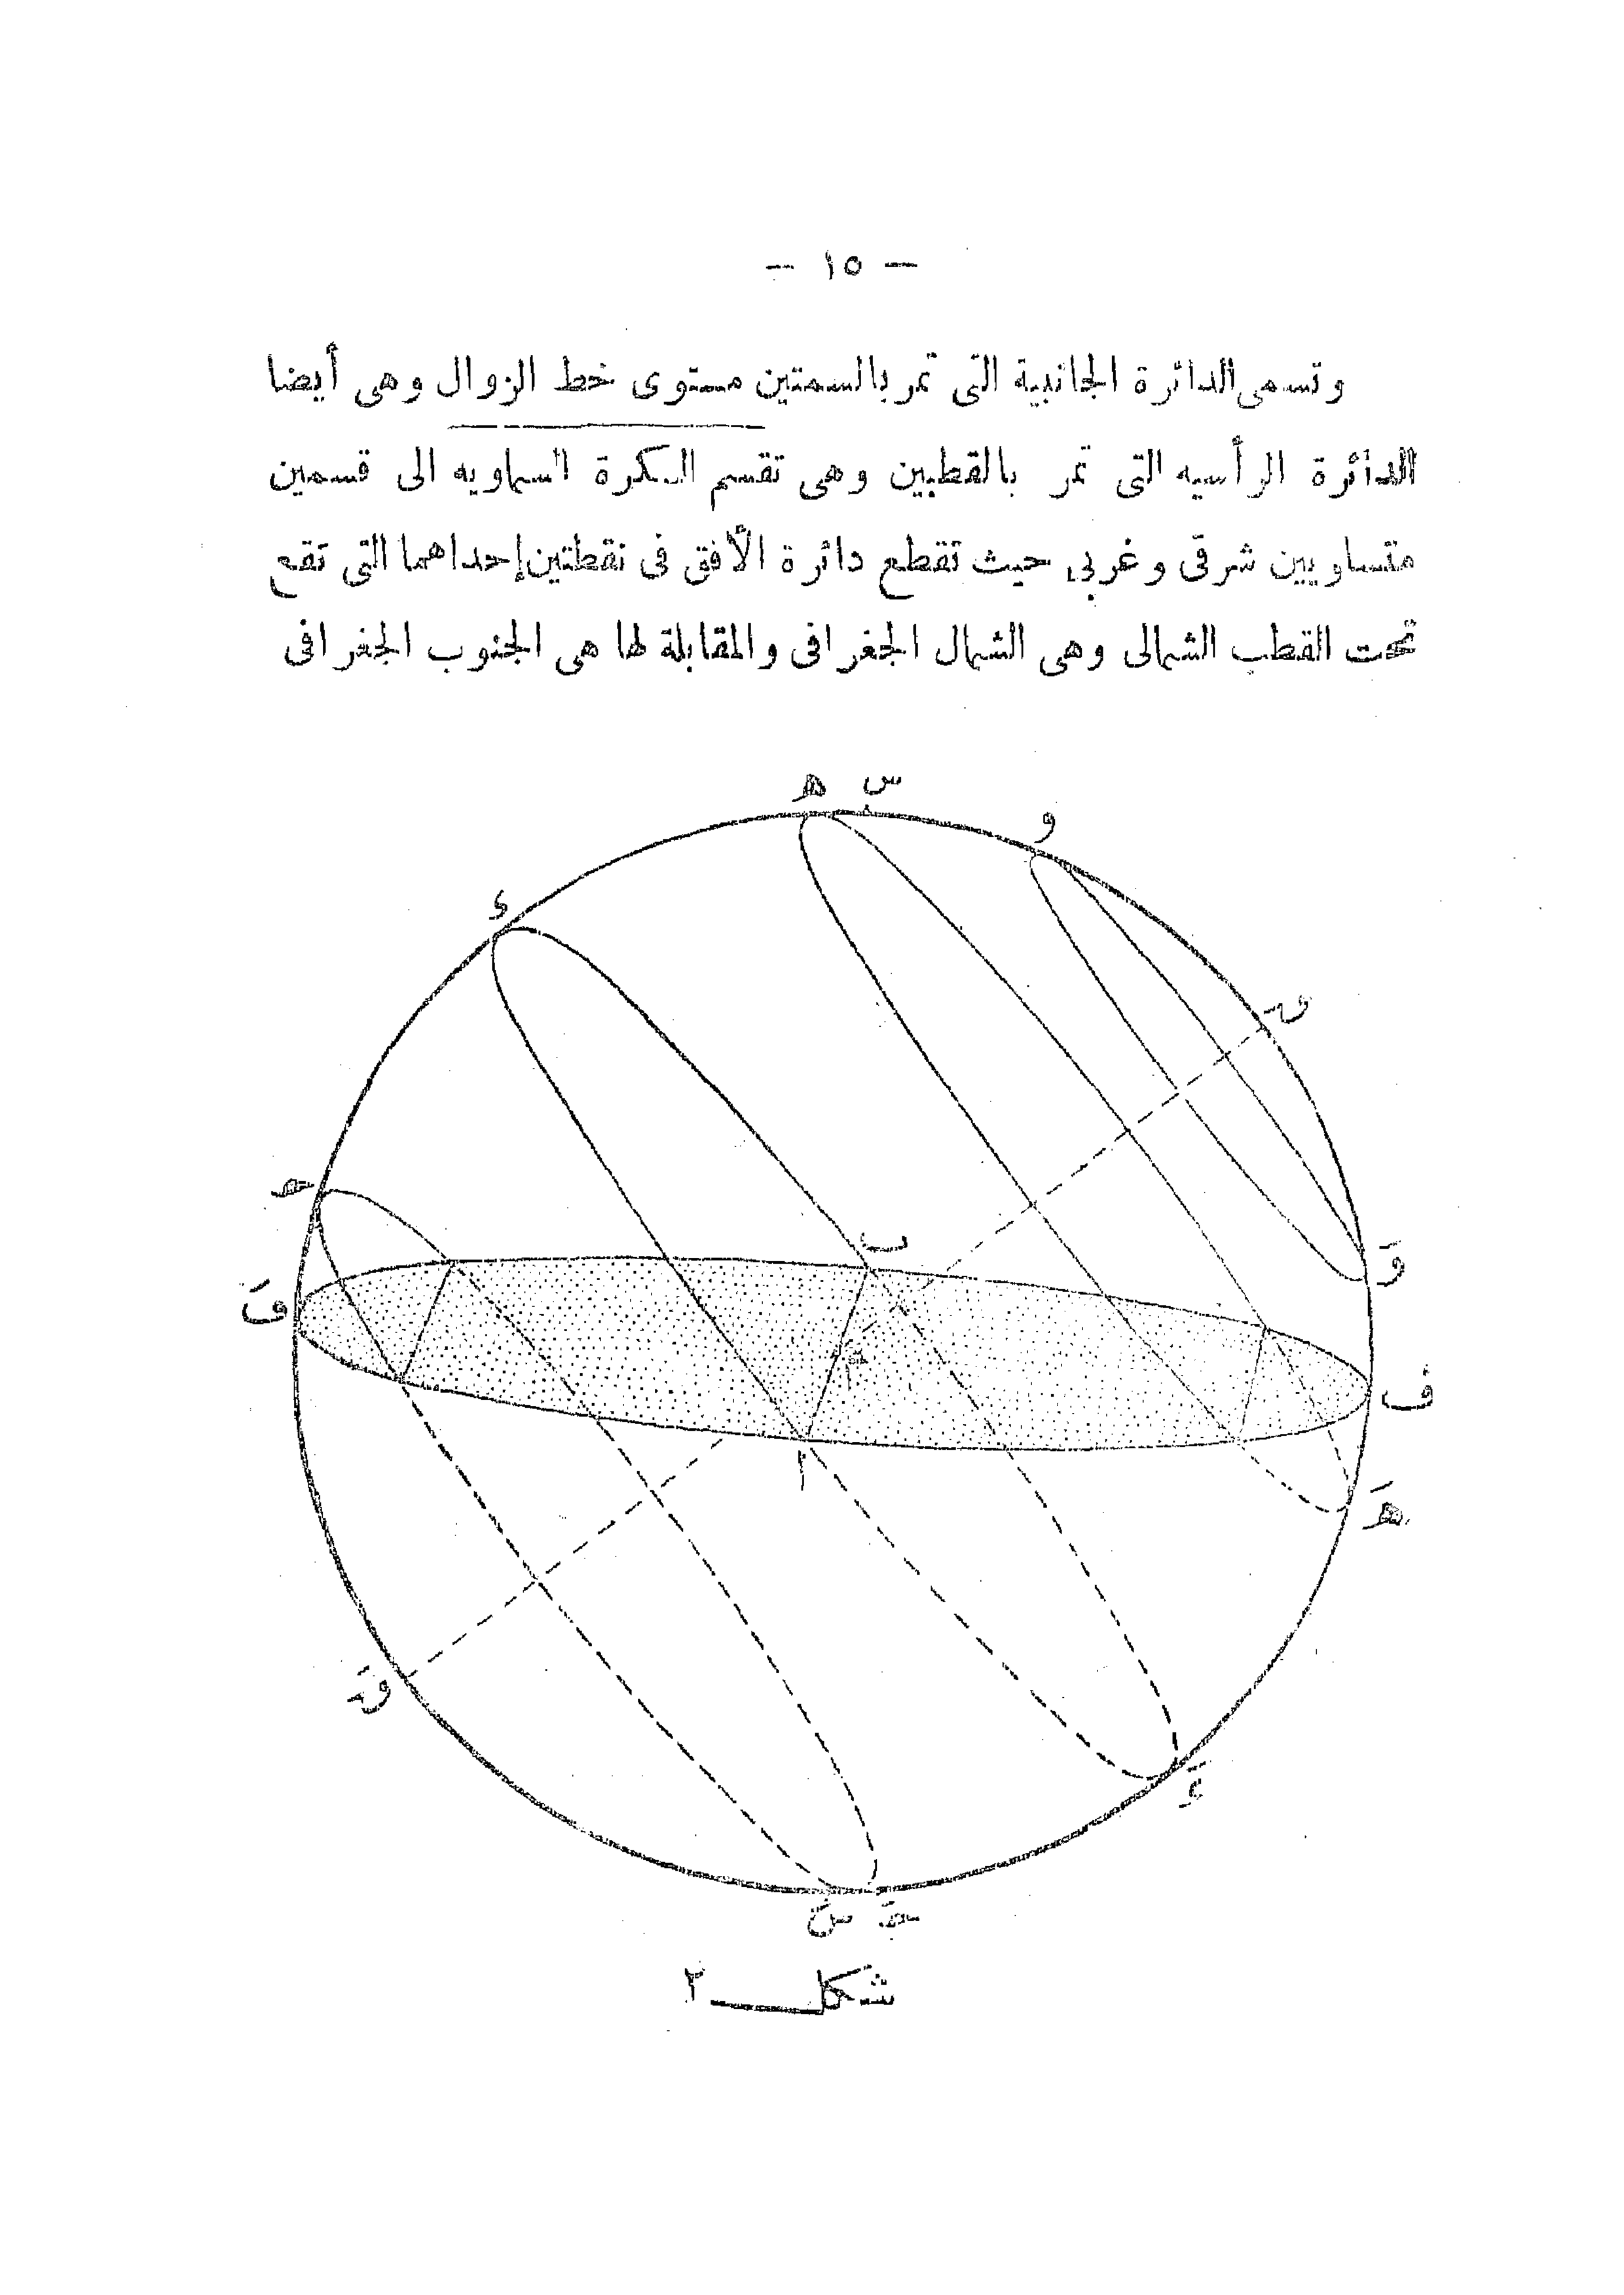 — ١٥ —
وتسمى الدائرة الجانبية التى تمر بالسمتين مستوى خط الزوال وهى أيضا
الدائرة الرأسيه التى تمر بالقطبين وهى تقسم الكرة السماويه الى قسمين
متساويين شرقى وغربى حيث تقطع دائرة الأفق فى نقطتين إحداهما التى تقع
تحت القطب الشمالى وهى الشمال الجغرافى والمقابلة لها هى الجنوب الجغرافى
هـ س
و
ء
ق
حـ
ب
وَ
فَ
م
ف
ا
هـَ
قَ
ءَ
سَ حـَ
شكل ٢